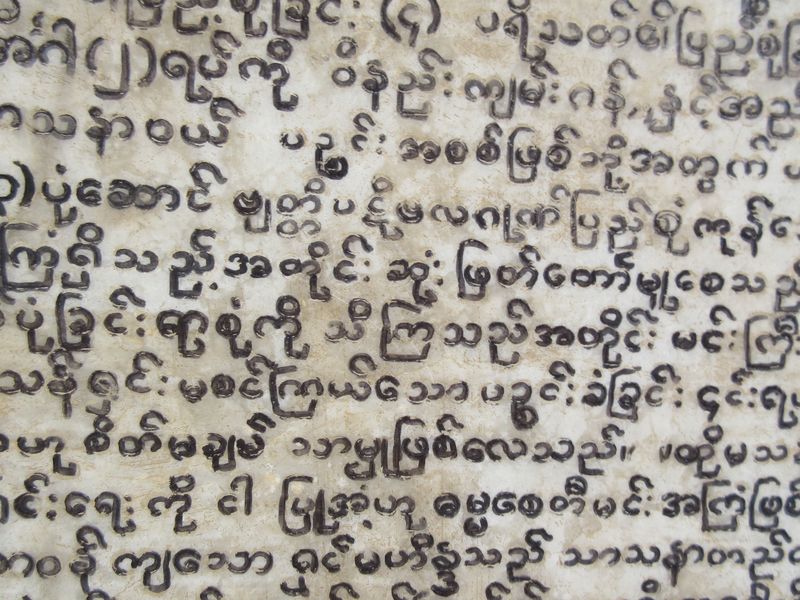 ပြည်စုံခြင်း (၄) ပရိသတ်၏ပြည်စုံ
အင်္ဂါ (၂) ရပ်ကို ဝိနည်းကျမ်းဂန်၊ နှင့်အညီ
သာသနာဝယ် ပဉ္စင်း အစစ်ဖြစ်ဘို့အတွက်
ပုံဆောင် မျတ္တိပဒ္ဒိမလဂုဏ်ပြည်စုံကုန်
ကြံ၍ သည့်အတိုင်း ဆုံးဖြတ်တော်မူစေသည်
ပုံခြင်းရာစုံကို သိကြသည်အတိုင်း မင်းကြီး
သန့်ရှင်း မစင်ကြယ်သော ပဉ္စင်းခံခြင်း ၎င်း
ဟု စိတ်မချမ် သာမှုဖြစ်လေသည်။ ။ထိုမ
င်းရေးကို ငါ ပြုအံ့ဟု ဓမ္မစေတီမင်းအကြံဖြစ်
ဝန် ကျသော ရှင်မဟိန္ဒသည် သာသနာတည်